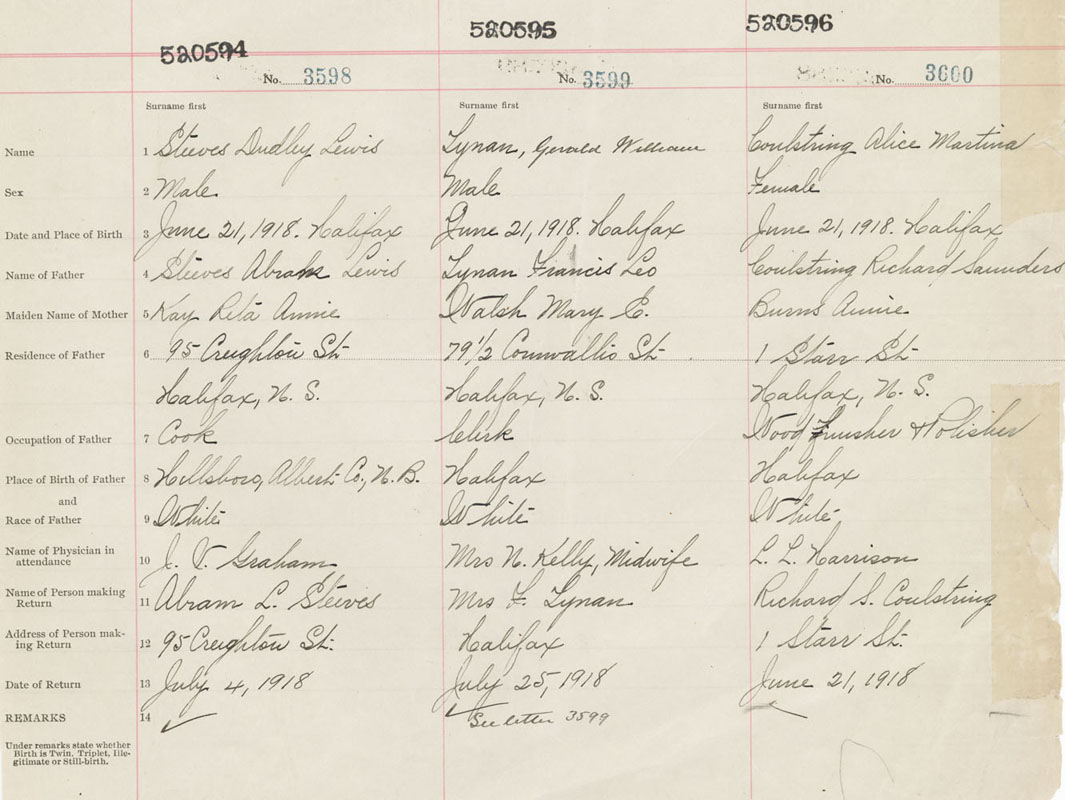 520594 520595 520596
No. 3598 No. 3599 No. 3600
Surname first Surname first Surname first
Name 1 Steeves Dudley Lewis Lynan, Gerald William Coulstring Alice Martina
Sex 2 Male Male Female
Date and Place of Birth 3 June 21, 1918. Halifax June 21, 1918. Halifax June 21, 1918. Halifax
Name of Father 4 Steeves Abram Lewis Lynan Francis Leo Coulstring Richard Saunders
Maiden Name of Mother 5 Kay Reta Annie Walsh Mary E. Burns Annie
Residence of Father 6 95 Creighton St. 79 1/2 Cornwallis St. 1 Starr St.
Halifax, N. S. Halifax, N. S. Halifax, N. S.
Occupation of Father 7 Cook Clerk Wood Finisher & Polisher
Place of Birth of Father 8 Hillsboro, Albert Co., N. B. Halifax Halifax
and
Race of Father 9 White White White
Name of Physician in
attendance 10 J. V. Graham Mrs N. Kelly, Midwife L. L. Harrison
Name of Person making
Return 11 Abram L. Steeves Mrs F. Lynan Richard S. Coulstring
Address of Person mak-
ing Return 12 95 Creighton St. Halifax 1 Starr St.
Date of Return 13 July 4, 1918 July 25, 1918 June 21, 1918
REMARKS 14 ✓ ✓ See letter 3599
Under remarks state whether
Birth is Twin, Triplet, Ille-
gitimate or Still-birth.